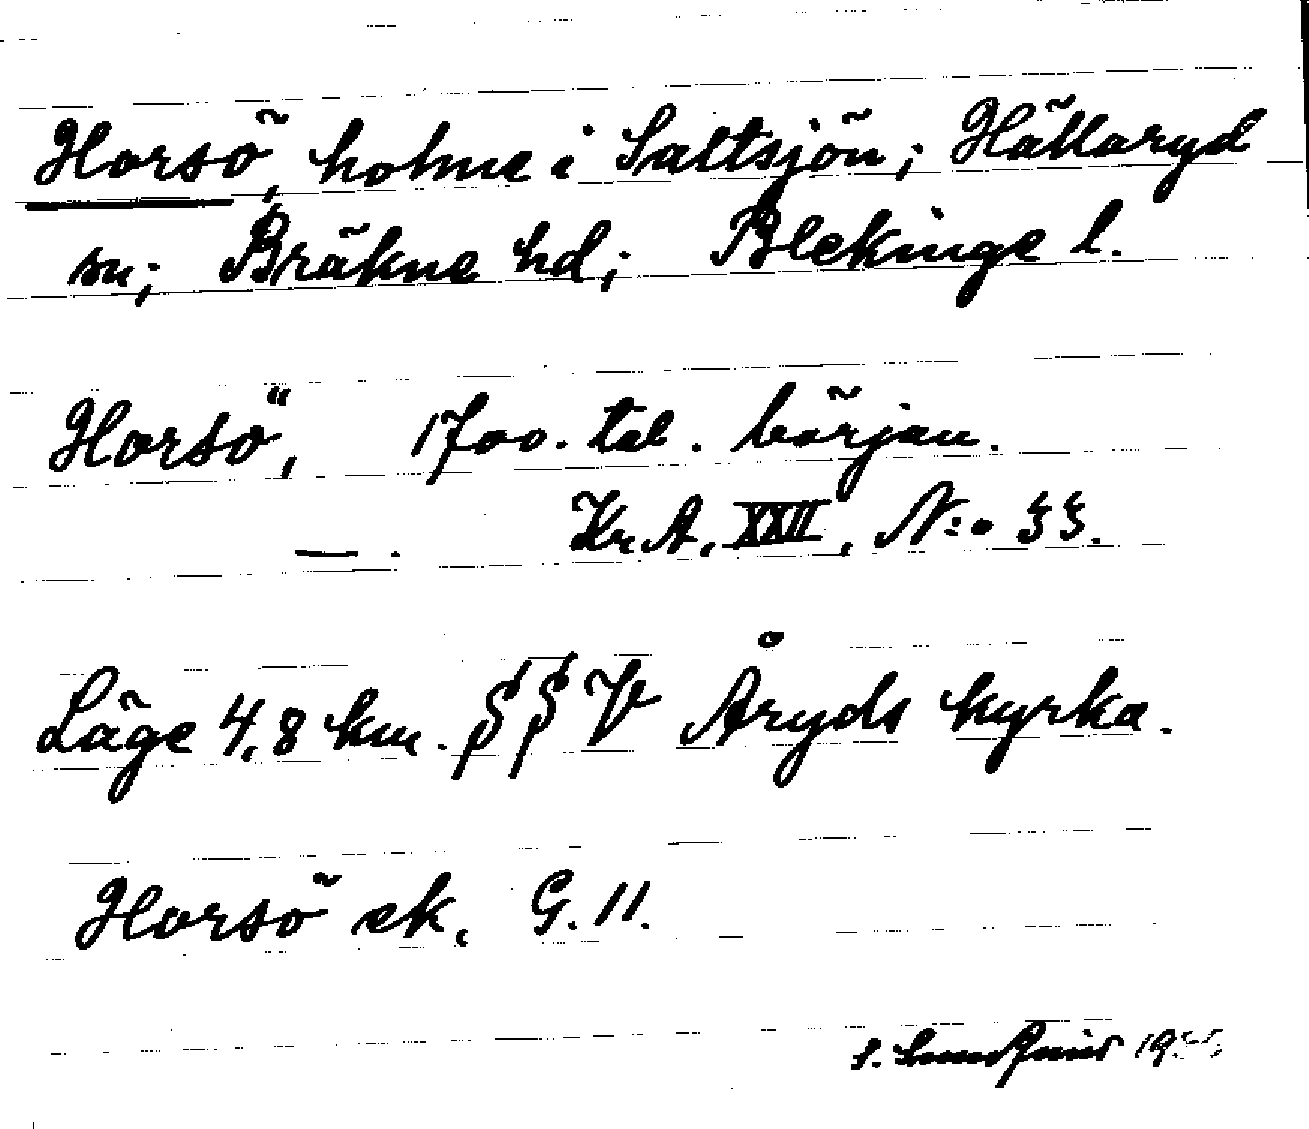 Horsö, holme i Saltsjön; Hällaryd
sn; Bräkne hd; Blekinge l.
Horsö", 1700. tal. början.
— . Kr. A. XXII, N:o 33.
Läge 4,8 km. SSV Åryds kyrka.
Horsö ek. G. 11.